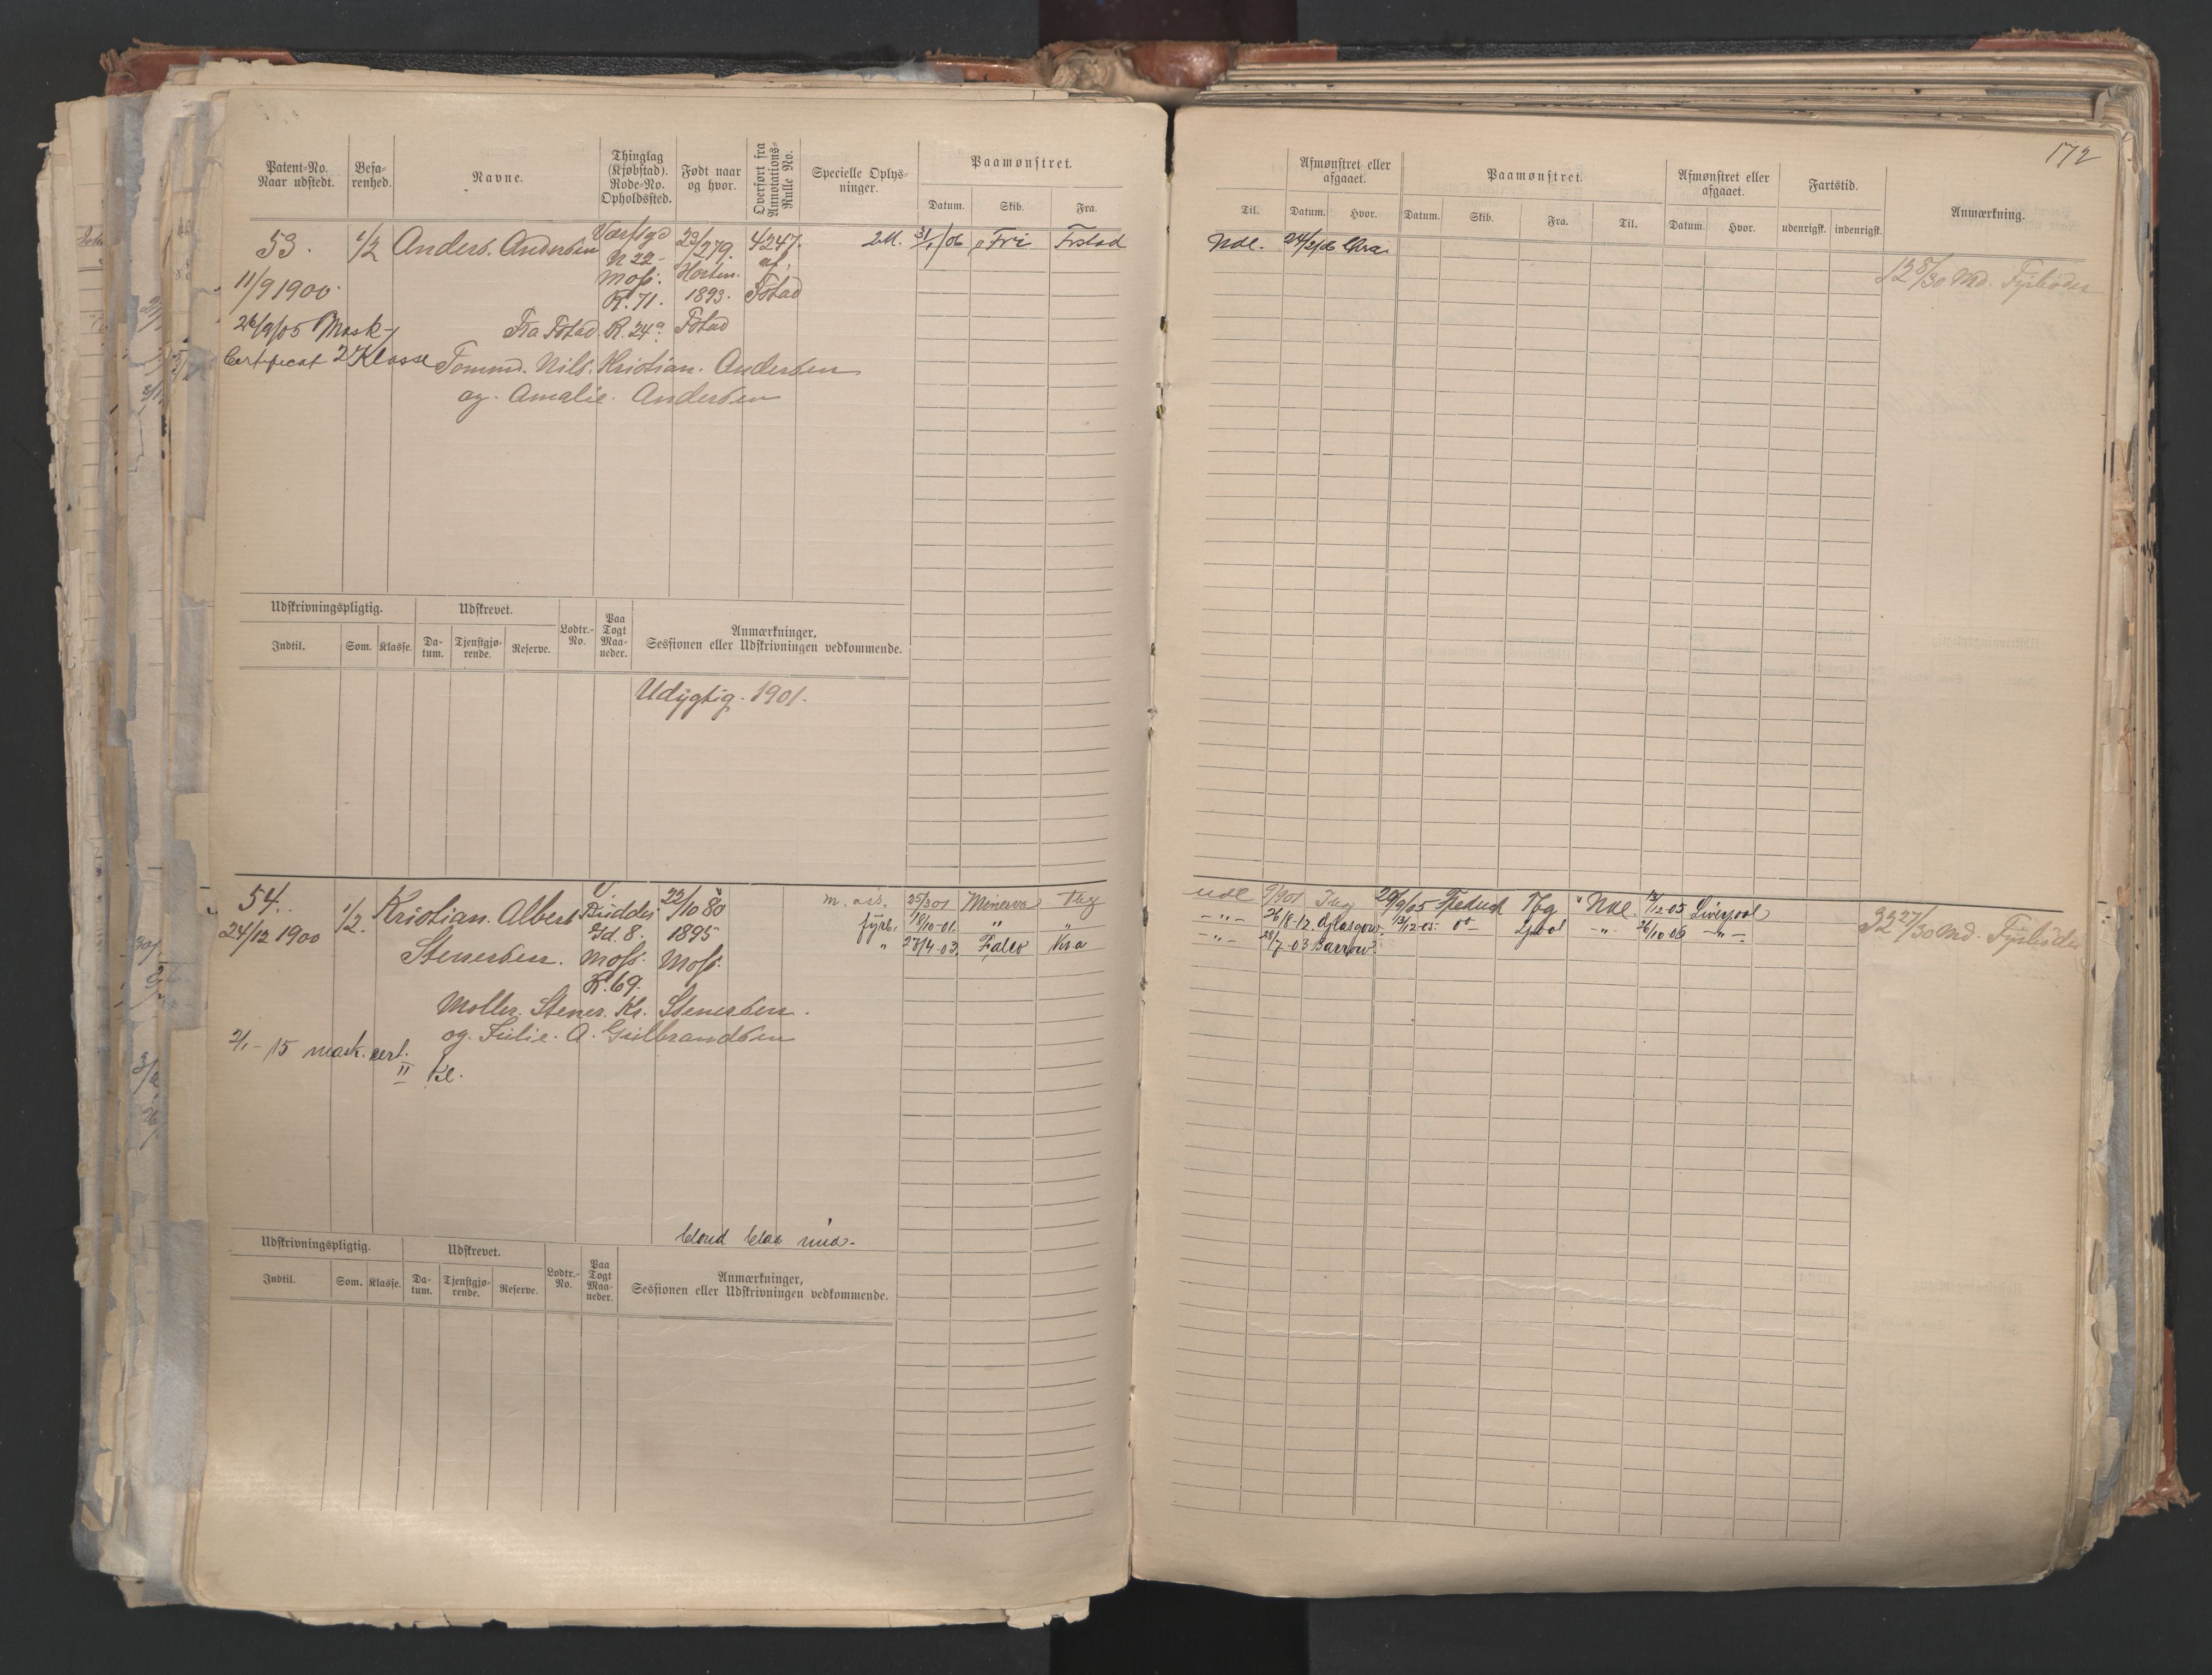 172
Patent-No. Naar udstedt.
Befa-renhed.
Navne.
Thinglag (Kjøbstad). Rode-No. Opholdssted.
Født naar og hvor.
Overført fra Annotations-Rulle No.
Specielle Oplys-ninger.
Paamønstret.
Datum. Skib. Fra.
Til.
Afmønstret eller afgaaet.
Datum. Hvor.
Paamønstret.
Datum. Skib. Fra. Til.
Afmønstret eller afgaaet.
Datum. Hvor.
Fartstid.
udenrigsk. indenrigsk.
Anmærkning.
53. 1/2 Anders. Andersen 23/279. 4247. 2M. 31/1 06 Fri Frstad Udl. 24/2 06 Chra
N 22 - Horten. af
11/9 1900. Moss. 1893. Fstad
R. 71.
12 8/30 Md. Fyrbøder
26/9/05 Mask- Fra Fstad. R. 24a. Fstad
Certificat 2 Klasse Tømmd. Nils. Kristian. Andersen
og. Amalie. Andersen
Udskrivningspligtig. Udskrevet. Lodtr.-No. Paa Togt Maa-neder. Anmærkninger, Sessionen eller Udskrivningen vedkommende.
Indtil. Som. Klasse. Da-tum. Tjenstgjø-rende. Reserve.
Udygtig. 1901.
54. 1/2. Kristian. Albert 22/10 80 m. ass. 25/3 01 Minerva Tbg udl 9/901 29/9/05 Tbg Udl. 12/12-05 Liverpool
24/12 1900 Gd. 8. 1895 fyrb. 18/10-01. " " -"- 26/8-12. Glasgow. 13/12-05 do Lpool -"- 26/10-06 -"-
Stenersen. Moss. Moss. " 27/4-03. Falco Kra -"- 28/7-03 Barrow.
32 27/30 Md. Fyrbøder
R. 69.
Møller. Stener. Kr. Stenersen.
og. Julie. A. Gulbrandsen
2/1-15 mask. cert.
II Kl.
blond blaa mid.
Udskrivningspligtig. Udskrevet. Lodtr.-No. Paa Togt Maa-neder. Anmærkninger, Sessionen eller Udskrivningen vedkommende.
Indtil. Som. Klasse. Da-tum. Tjenstgjø-rende. Reserve.